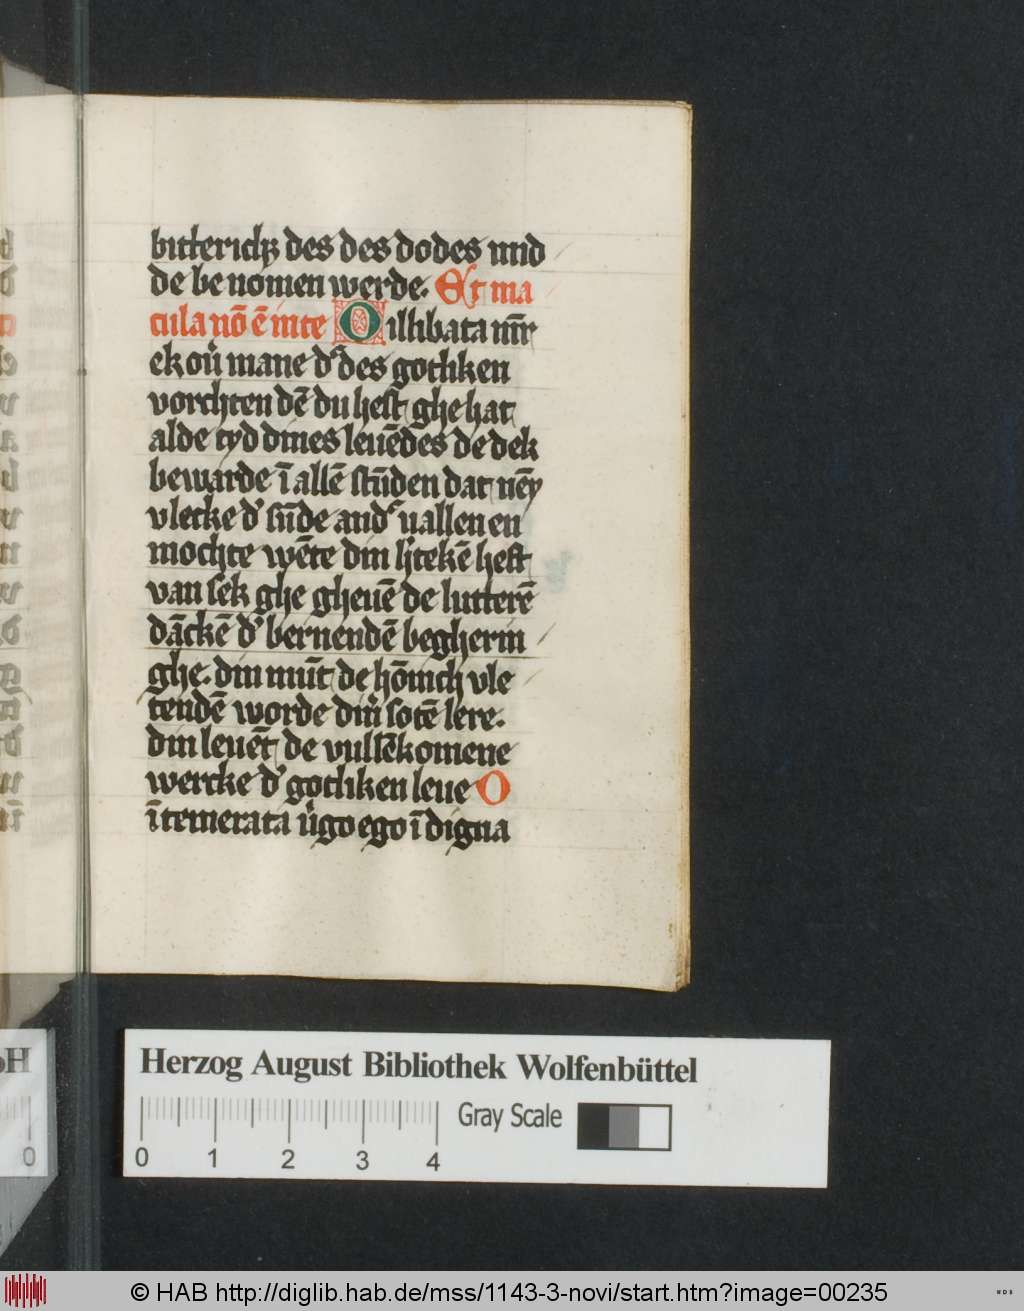 bitterich&#42863; des des dodes und
de be nomen werde. Et ma
cula nō ē in te O illibata mr̄
ek ou̇ mane d' des gotliken
vorchten dē du hest ghe hat
alde tyd dines leuēdes de dek
bewarde ī allē stūden dat nēy
vlecke d' sūde and' uallen en
mochte wēte din h'tekē heft
van sek ghe gheuē de lutterē
dāckē d' bernendē begherin
ghe. din mūt de hōnich vle
tendē worde din' sotē lere.
din leuēt de vullēkomene
wercke d' gotliken leue O
ītemerata u'go ego ī digna
Herzog August Bibliothek Wolfenbüttel
0 1 2 3 4 Gray Scale
0
© HAB http://diglib.hab.de/mss/1143-3-novi/start.htm?image=00235